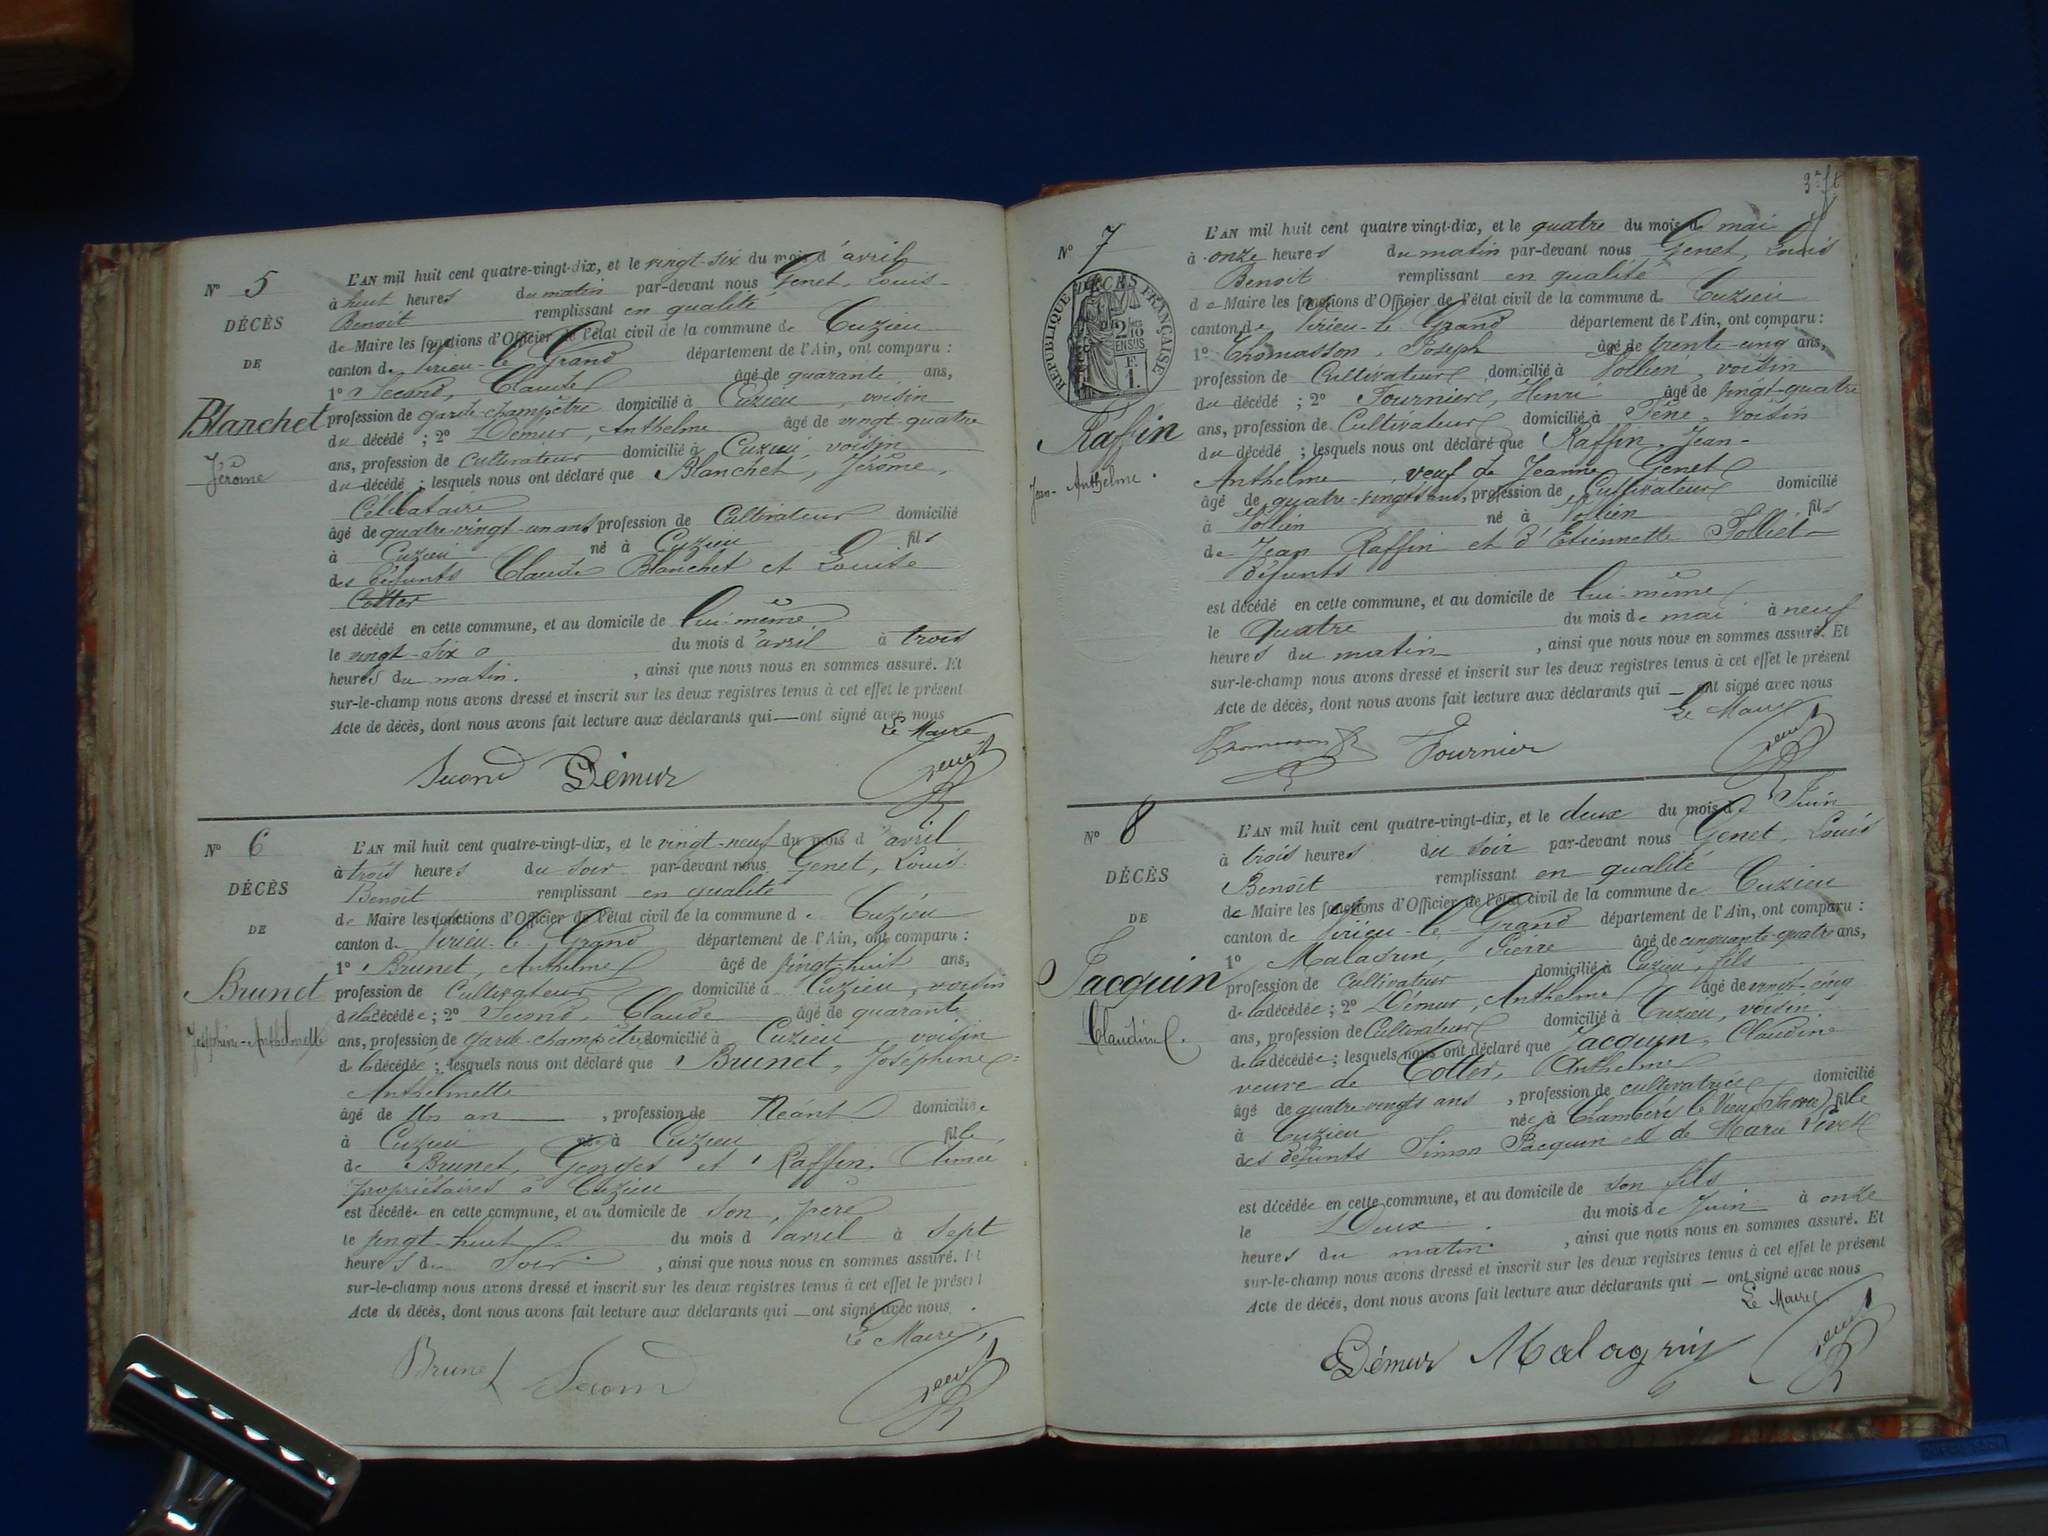 N° 5
DÉCÈS
DE
Blanchet
Jérôme
L'AN mil huit cent quatre-vingt-dix, et le vingt-six du mois d'avril
à huit heures du matin par-devant nous Genet, Louis-
Benoit remplissant en qualité
de Maire les fonctions d'Officier de l'état civil de la commune de Cuzieu
canton de Virieu-le-Grand département de l'Ain, ont comparu :
1° Second, Claude âgé de quarante ans,
profession de garde-champêtre domicilié à Cuzieu, voisin
du décédé ; 2° Démur, Anthelme âgé de vingt-quatre
ans, profession de Cultivateur domicilié à Cuzieu, voisin
du décédé ; lesquels nous ont déclaré que Blanchet, Jérôme,
Célibataire
âgé de quatre-vingt-un ans profession de Cultivateur domicilié
à Cuzieu né à Cuzieu fils
des défunts Claude Blanchet et Louise
Cotter
est décédé en cette commune, et au domicile de lui-même
le vingt-six du mois d'avril à trois
heures du matin. , ainsi que nous nous en sommes assuré. Et
sur-le-champ nous avons dressé et inscrit sur les deux registres tenus à cet effet le présent
Acte de décès, dont nous avons fait lecture aux déclarants qui — ont signé avec nous
Le Maire
Second Démur Genet
N° 6
DÉCÈS
DE
Brunet
Joséphine-Anthelmette
L'AN mil huit cent quatre-vingt-dix, et le vingt-neuf du mois d'avril
à trois heures du soir par-devant nous Genet, Louis
Benoit remplissant en qualité
de Maire les fonctions d'Officier de l'état civil de la commune de Cuzieu
canton de Virieu-le-Grand département de l'Ain, ont comparu :
1° Brunet, Anthelme âgé de vingt-huit ans,
profession de Cultivateur domicilié à Cuzieu, voisin
de la décédée ; 2° Second, Claude âgé de quarante
ans, profession de garde-champêtre domicilié à Cuzieu, voisin
de la décédée ; lesquels nous ont déclaré que Brunet, Joséphine=
Anthelmette
âgé de un an , profession de Néant domiciliée
à Cuzieu née à Cuzieu fille
de Brunet, Georges et Raffin, Aimée
propriétaires à Cuzieu
est décédée en cette commune, et au domicile de son père
le vingt-huit du mois d'avril à sept
heures du soir , ainsi que nous nous en sommes assuré. Et
sur-le-champ nous avons dressé et inscrit sur les deux registres tenus à cet effet le présent
Acte de décès, dont nous avons fait lecture aux déclarants qui — ont signé avec nous.
Le Maire,
Brunet Second Genet
3e ft
N° 7
DÉCÈS
RÉPUBLIQUE FRANÇAISE
2/10 EN SUS
F. 1.
Raffin
Jean-Anthelme.
L'AN mil huit cent quatre vingt-dix, et le quatre du mois de mai
à onze heures du matin par-devant nous Genet, Louis
Benoit remplissant en qualité
de Maire les fonctions d'Officier de l'état civil de la commune de Cuzieu
canton de Virieu-le-Grand département de l'Ain, ont comparu :
1° Thomasson, Joseph âgé de trente-cinq ans,
profession de Cultivateur domicilié à Vollien, voisin
du décédé ; 2° Fournier, Henri âgé de vingt-quatre
ans, profession de Cultivateur domicilié à voisin
du décédé ; lesquels nous ont déclaré que Raffin, Jean-
Anthelme, veuf de Jeanne Genet
âgé de quatre-vingts ans, profession de Cultivateur domicilié
à Vollien né à Vollien fils
de Jean Raffin et d'Etiennette Folliet
défunts
est décédé en cette commune, et au domicile de lui-même
le quatre du mois de mai à neuf
heures du matin , ainsi que nous nous en sommes assuré. Et
sur-le-champ nous avons dressé et inscrit sur les deux registres tenus à cet effet le présent
Acte de décès, dont nous avons fait lecture aux déclarants qui — ont signé avec nous
Le Maire
Thomasson Fournier Genet
N° 8
DÉCÈS
DE
Jacquin
Claudine.
L'AN mil huit cent quatre-vingt-dix, et le deux du mois de Juin
à trois heures du soir par-devant nous Genet, Louis
Benoit remplissant en qualité
de Maire les fonctions d'Officier de l'état civil de la commune de Cuzieu
canton de Virieu-le-Grand département de l'Ain, ont comparu :
1° Pierre âgé de cinquante-quatre ans,
profession de Cultivateur domicilié à Cuzieu, fils
de la décédée ; 2° Démur, Anthelme âgé de vingt-cinq
ans, profession de Cultivateur domicilié à Cuzieu, voisin
de la décédée ; lesquels nous ont déclaré que Jacquin, Claudine
veuve de Cotter, Anthelme
âgé de quatre-vingts ans , profession de cultivatrice domicilié
à Cuzieu née à Chambéry le Vieux (Savoie) fille
des défunts Simon Jacquin et de Marie
est décédée en cette commune, et au domicile de son fils
le Deux du mois de Juin à onze
heures du matin , ainsi que nous nous en sommes assuré. Et
sur-le-champ nous avons dressé et inscrit sur les deux registres tenus à cet effet le présent
Acte de décès, dont nous avons fait lecture aux déclarants qui — ont signé avec nous
Le Maire
Démur Malagrin Genet